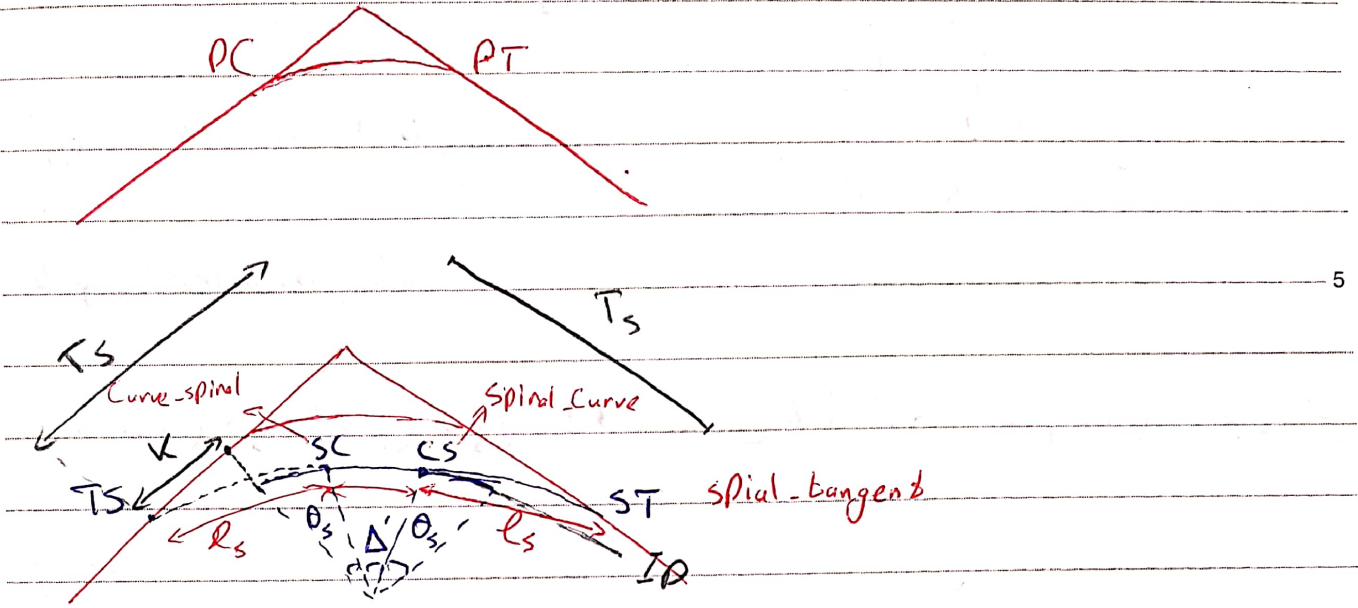 PC PT
5
Ts
TS
Curve_spinal Spinal_Curve
K SC CS
TS ST spial_tangent
θs Δ' θs
ls ls